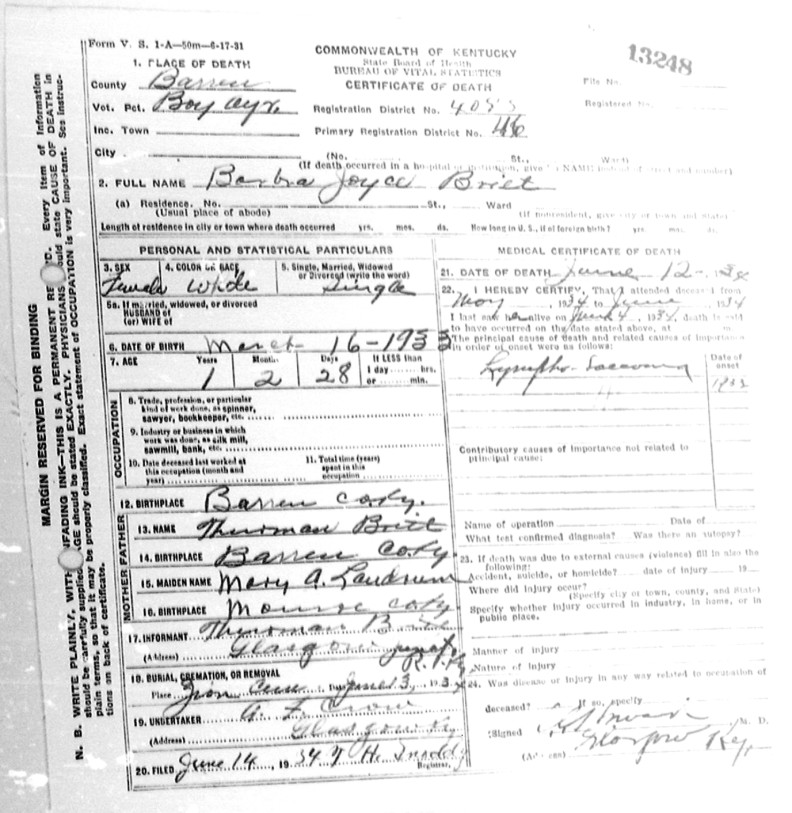 Form V. S. 1-A—50m—6-17-31
COMMONWEALTH OF KENTUCKY
State Board of Health
BUREAU OF VITAL STATISTICS
CERTIFICATE OF DEATH
13248
1. PLACE OF DEATH
County Barren
Vot. Pct. Boy
Inc. Town
City (No. St., Ward)
File No.
Registered No.
Registration District No.
Primary Registration District No. 416
(If death occurred in a hospital or institution, give its NAME instead of street and number)
2. FULL NAME Barbra Joyce Britt
(a) Residence. No. St., Ward
(Usual place of abode) (If nonresident, give city or town and State)
Length of residence in city or town where death occurred yrs. mos. ds. How long in U. S., if of foreign birth? yrs. mos. ds.
PERSONAL AND STATISTICAL PARTICULARS
3. SEX 4. COLOR OR RACE 5. Single, Married, Widowed or Divorced (write the word)
Female White Single
5a. If married, widowed, or divorced
HUSBAND of
(or) WIFE of
6. DATE OF BIRTH March 16-1933
7. AGE Years Months Days If LESS than
1 2 28 1 day hrs.
or min.
OCCUPATION
8. Trade, profession, or particular
kind of work done, as spinner,
sawyer, bookkeeper, etc.
9. Industry or business in which
work was done, as silk mill,
sawmill, bank, etc.
10. Date deceased last worked at
this occupation (month and
year)
11. Total time (years)
spent in this
occupation
FATHER
MOTHER
12. BIRTHPLACE Barren Co Ky.
13. NAME Thurman Britt
14. BIRTHPLACE Barren Co Ky.
15. MAIDEN NAME Mary A. Landrum
16. BIRTHPLACE Monroe Co Ky
17. INFORMANT Thurman Britt
(Address) Glasgow
18. BURIAL, CREMATION, OR REMOVAL
Place Date 193
19. UNDERTAKER Crow
(Address) Glasgow Ky
20. FILED June 14, 1934 H. Snoddy
Registrar.
MEDICAL CERTIFICATE OF DEATH
21. DATE OF DEATH June 12-34
22. I HEREBY CERTIFY, That I attended deceased from
May, 1934 to June, 1934
I last saw her alive on June 4, 1934, death is said
to have occurred on the date stated above, at m.
The principal cause of death and related causes of importance
in order of onset were as follows:
Date of
onset
Lympho-Sarcoma
Contributory causes of importance not related to
principal cause:
Name of operation Date of
What test confirmed diagnosis? Was there an autopsy?
23. If death was due to external causes (violence) fill in also the
following:
Accident, suicide, or homicide? date of injury 19
Where did injury occur?
(Specify city or town, county, and State)
Specify whether injury occurred in industry, in home, or in
public place.
Manner of injury
Nature of injury
24. Was disease or injury in any way related to occupation of
deceased? If so, specify
(Signed) M. D.
(Address) Glasgow Ky.
MARGIN RESERVED FOR BINDING
N. B. WRITE PLAINLY, WITH UNFADING INK—THIS IS A PERMANENT RECORD. Every item of information
should be carefully supplied. AGE should be stated EXACTLY. PHYSICIANS should state CAUSE OF DEATH in
plain terms, so that it may be properly classified. Exact statement of OCCUPATION is very important. See instruc-
tions on back of certificate.